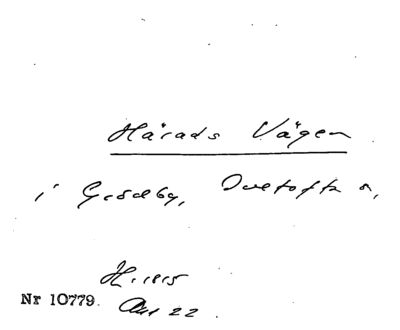 Härads Vägen
i Gessby, Duetofta s,
H. 1815
Nr 10779. Akt 22